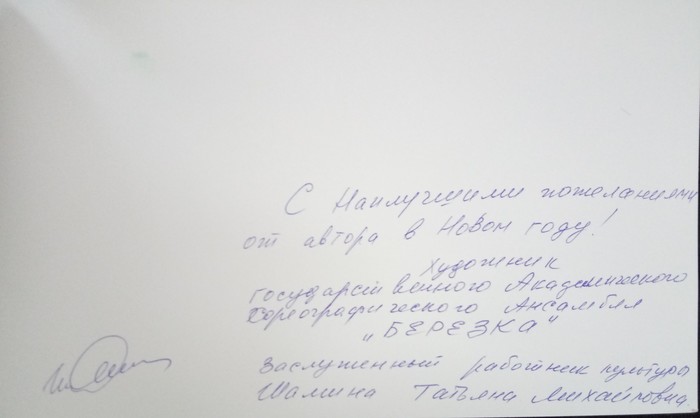 С Наилучшими пожеланиями
от автора в Новом году!
Художник
государственного Академического
Хореографического Ансамбля
„БЕРЕЗКА"
Заслуженный работник культуры
Шамина Татьяна Михайловна